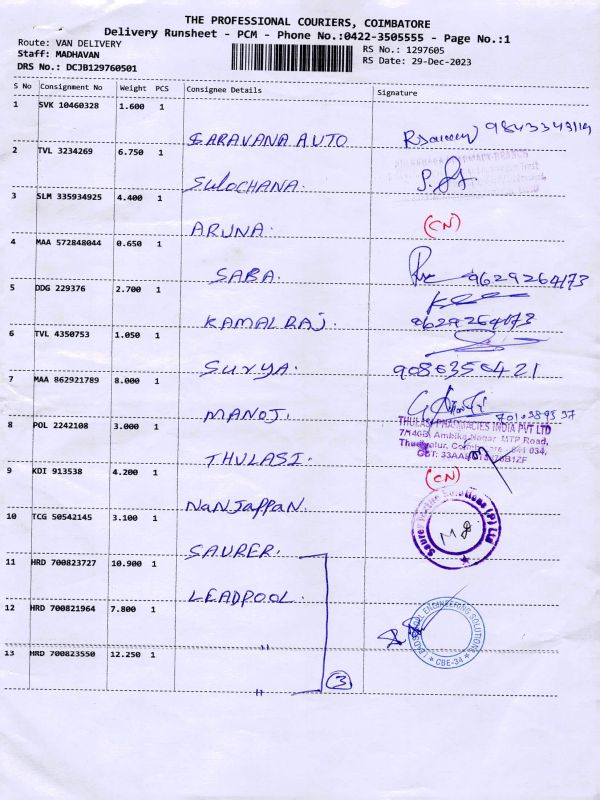 THE PROFESSIONAL COURIERS, COIMBATORE
Delivery Runsheet - PCM - Phone No.:0422-3505555 - Page No.:1
Route: VAN DELIVERY
RS No.: 1297605
Staff: MADHAVAN
RS Date: 29-Dec-2023
DRS No.: DCJB129760501
S No Consignment No Weight PCS Consignee Details Signature
1 SVK 10460328 1.600 1
SARAVANA AUTO
2 TVL 3234269 6.750 1
SULOCHANA.
3 SLM 335934925 4.400 1
ARUNA. (CN)
4 MAA 572848044 0.650 1
SABA. 9629264173
5 DDG 229376 2.700 1
KAMALRAJ. 9629264173
6 TVL 4350753 1.050 1
SURYA.
7 MAA 862921789 8.000 1
MANOJ.
THULASI PHARMACIES INDIA PVT LTD
8 POL 2242108 3.000 1
7/140B, Ambika Nagar, MTP Road,
THULASI.
9 KDI 913538 4.200 1
(CN)
NANJAPPAN.
10 TCG 50542145 3.100 1
SAURER.
11 HRD 700823727 10.900 1
LEADPOOL.
12 HRD 700821964 7.800 1
ENGINEERING SOLUTIONS
CBE-34
13 HRD 700823550 12.250 1
3